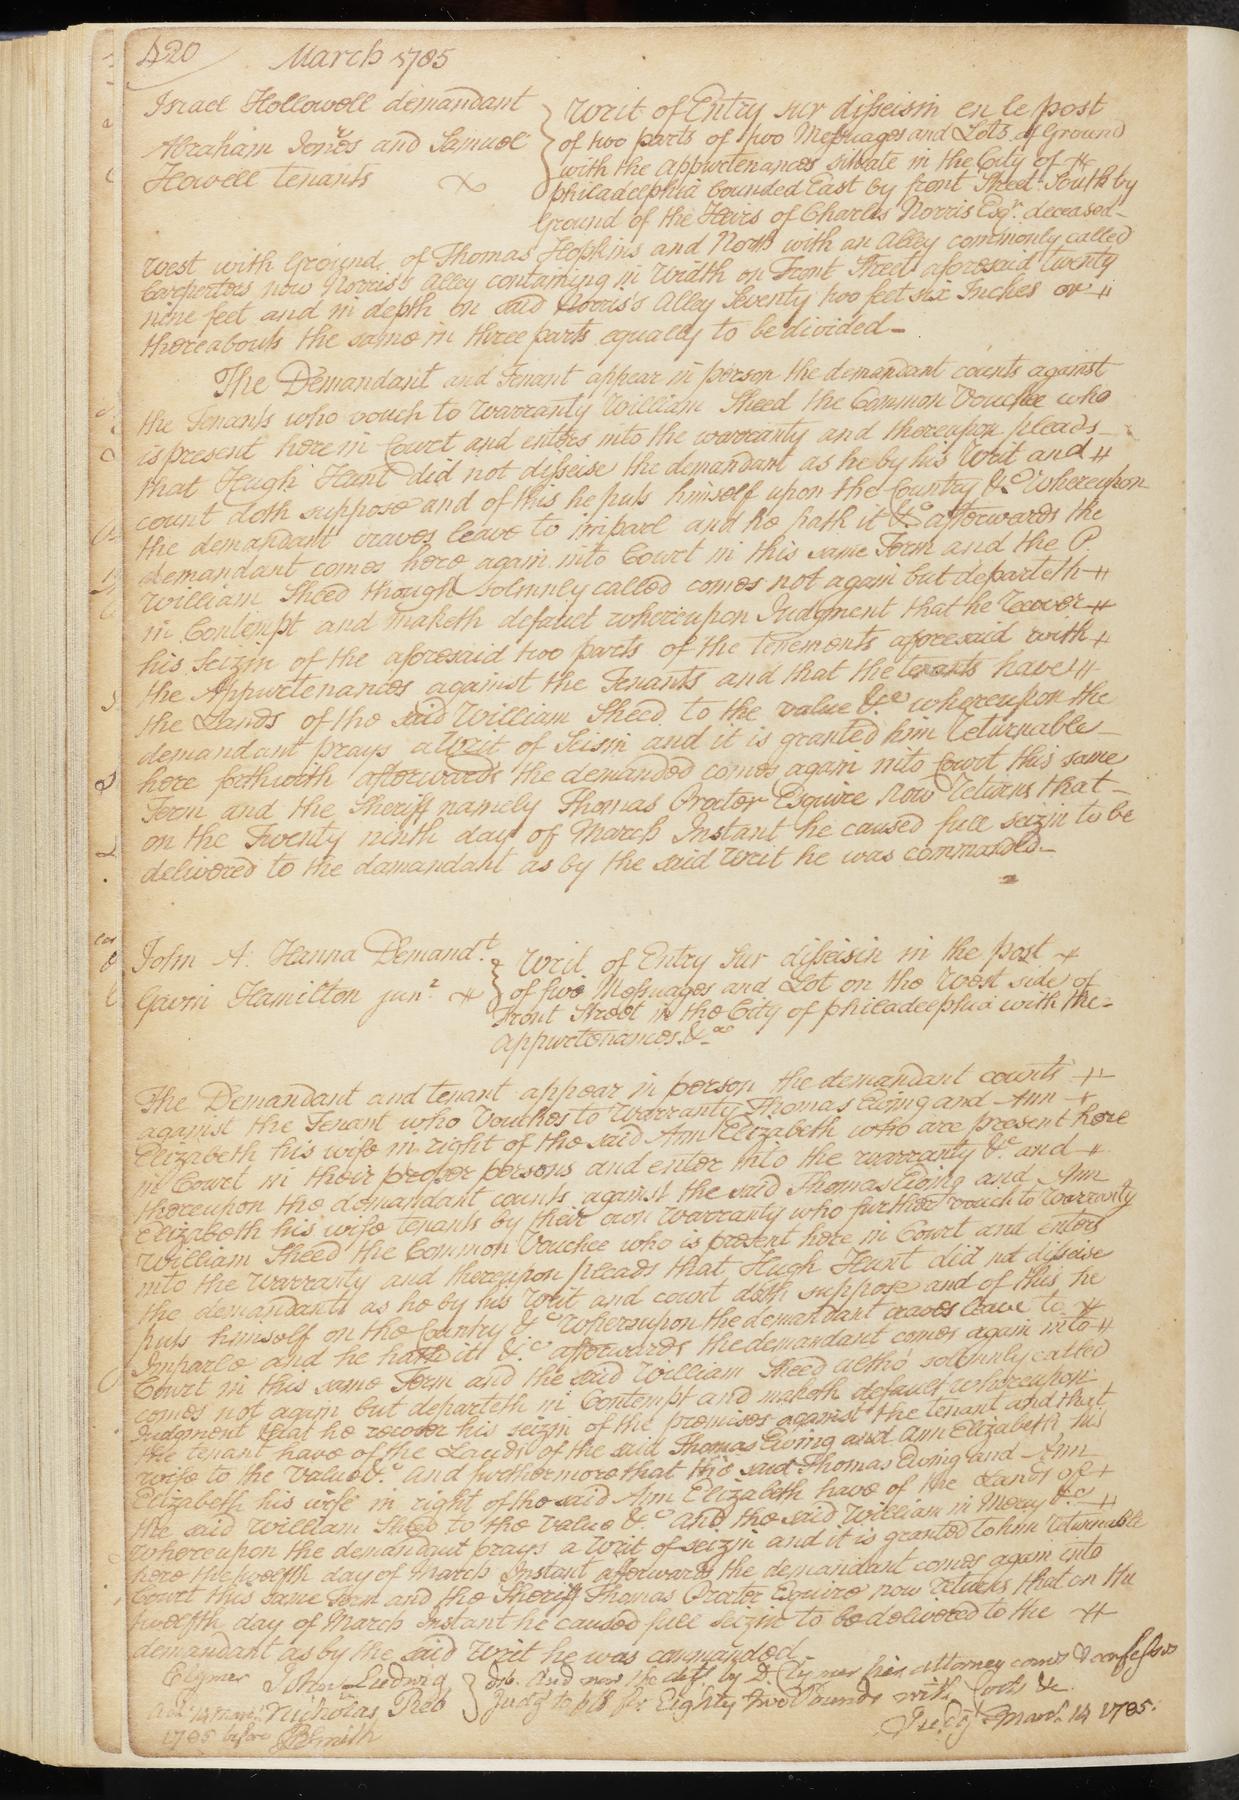 420 March 1785
Israel Hollowell demandant
Abraham Jones and Samuel
Howell tenants
Writ of Entry sur disseisin en le post
of two parts of two Messuages and Lots of Ground
with the appurtenances situate in the City of
philadelphia bounded East by front Street South by
Ground of the Heirs of Charles Norris Esqr. deceased
West with Ground of Thomas Hopkins and North with an Alley commonly called
Carpenters now Norris's Alley containing in Width on Front Street aforesaid twenty
nine feet and in depth on said Norris's Alley Seventy two feet six Inches or
thereabouts the same in three parts equally to be divided
The Demandant and Tenant appear in person the demandant counts against
the Tenants who vouch to Warranty William Sheed the Common Vouchee who
is present here in Court and enters into the warranty and thereupon pleads
that Hugh Hunt did not disseise the demandant as he by his Writ and
count doth suppose and of this he puts himself upon the Country &c Whereupon
the demandant craves leave to imparl and he hath it &c afterwards the
demandant comes here again into Court in this same Term and the P.
William Sheed though solmnly called comes not again but departeth
in Contempt and maketh default whereupon Judgment that he Recover
his Seizin of the aforesaid two parts of the Tenements aforesaid with
the Appurtenances against the Tenants and that the tenants have
the Lands of the said William Sheed to the value &c whereupon the
demandant prays a Writ of Seisin and it is granted him Returnable
here forthwith afterwards the demanded comes again into Court this same
Term and the Sheriff namely Thomas Procter Esquire now Returns that
on the Twenty ninth day of March Instant he caused full seizin to be
delivered to the damandant as by the said Writ he was commanded
John A. Hanna Demandt.
Gavin Hamilton junr.
Writ of Entry Sur disseisin in the post
of five Messuages and Lot on the West side of
Front Street in the City of philadelphia with the
appurtenances &c
The Demandant and tenant appear in person the demandant counts
against the Tenant who Vouches to Warranty Thomas Ewing and Ann
Elizabeth his wife in right of the said Ann Elizabeth who are present here
in Court in their proper persons and enter into the warranty &c and
thereupon the demandant counts against the said Thomas Ewing and Ann
Elizabeth his wife tenants by their own Warranty who further vouch to Warranty
William Sheed the Common Vouchee who is present here in Court and enters
into the Warranty and thereupon pleads that Hugh Hunt did not disseise
the demandants as he by his Writ and count doth suppose and of this he
puts himself on the Country &c Whereupon the demandant craves leave to
Imparle and he hath it &c afterwards the demandant comes again into
Court in this same Term and the said William Sheed altho' solemnly called
comes not again but departeth in Contempt and maketh default whereupon
Judgment that he recover his seizin of the premises against the tenant and that
the tenant have of the Lands of the said Thomas Ewing and Ann Elizabeth his
wife to the Value &c And furthermore that the said Thomas Ewing and Ann
Elizabeth his wife in right of the said Ann Elizabeth have of the Lands of
the said William Sheed to the Value &c And the said William in Mercy &c
Whereupon the demandant prays a Writ of seizin and it is granted to him Returnable
here the twelfth day of March Instant afterwards the demandant comes again into
Court this same Term and the Sheriff Thomas Procter Esquire now returns that on the
twelfth day of March Instant he caused full seizin to be delivered to the
demandant as by the said Writ he was commanded
Clymer John Ludwig
Nicholas Reb
1785 before JBSmith
deb. And now the deft by D Clymer his attorney comes & confesses
Judgt to plff for Eighty two Pounds with Costs &c
March 14 1785.